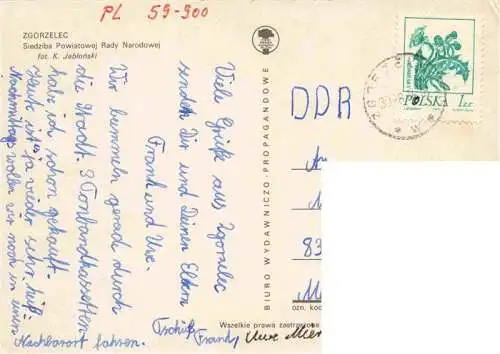 PL 59-900
ZGORZELEC
Siedziba Powiatowej Rady Narodowej
fot. K. Jabłoński
Viele Grüße aus Zgorzelec
senden Dir und Deinen Eltern
Frank und Uwe.
Wir bummeln gerad durch
die Stadt. 3 Tonbandkassetten
hab ich schon gekauft.
Heute ist es ja wieder sehr heiß
Nachmittags wollen wir noch in einen
Nachbarort fahren.
Tschüß
Frank,
Uwe
BIURO WYDAWNICZO-PROPAGANDOWE
POLSKA 1 ZŁ
DDR
83
ozn. kod
Wszelkie prawa zastrzeżone